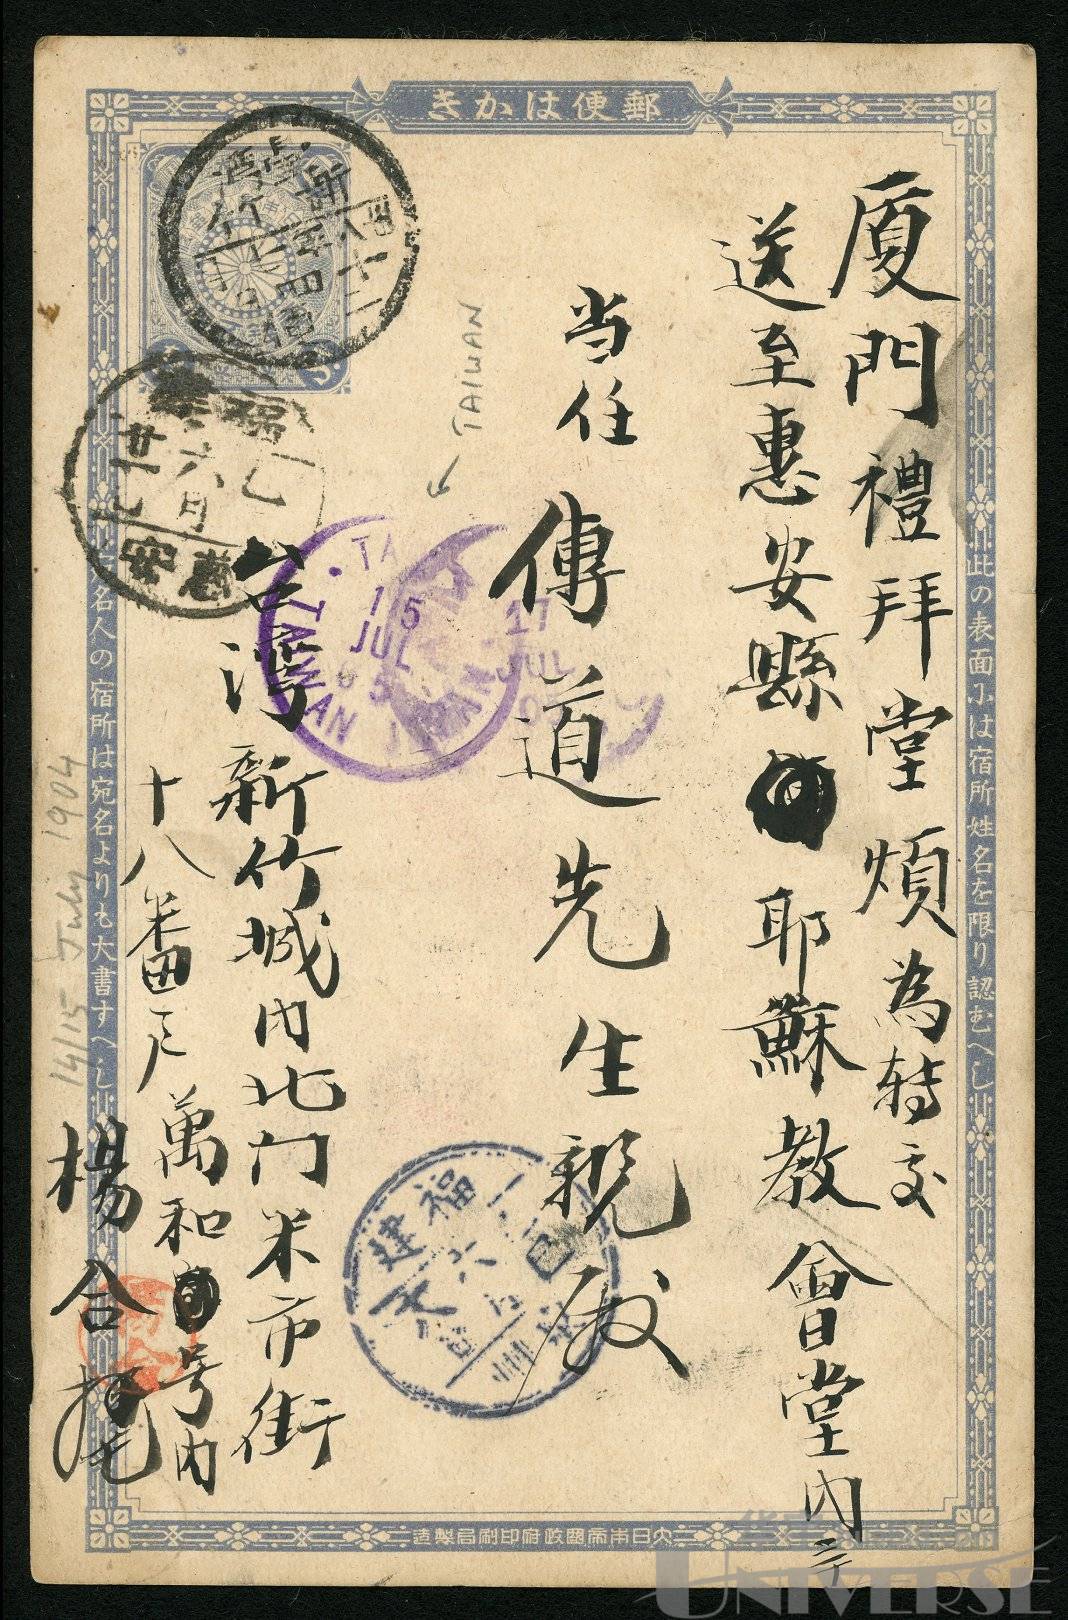 郵便はかき
此の表面には宿所姓名を限り認むへし
厦門禮拜堂煩為轉交
送至惠安縣耶蘇教會堂內
当任
傳道先生親
台湾新竹城内北门米市街
十八番戶萬和号内
楊合
名人の宿所は宛名よりも大書すへし
大日本帝國政府印刷局製造
TAIWAN
14/15 July 1904
15
JUL
TAIWAN
17
JUL
福建
六月
惠安
廿一
福建
六月
UNIVERSE